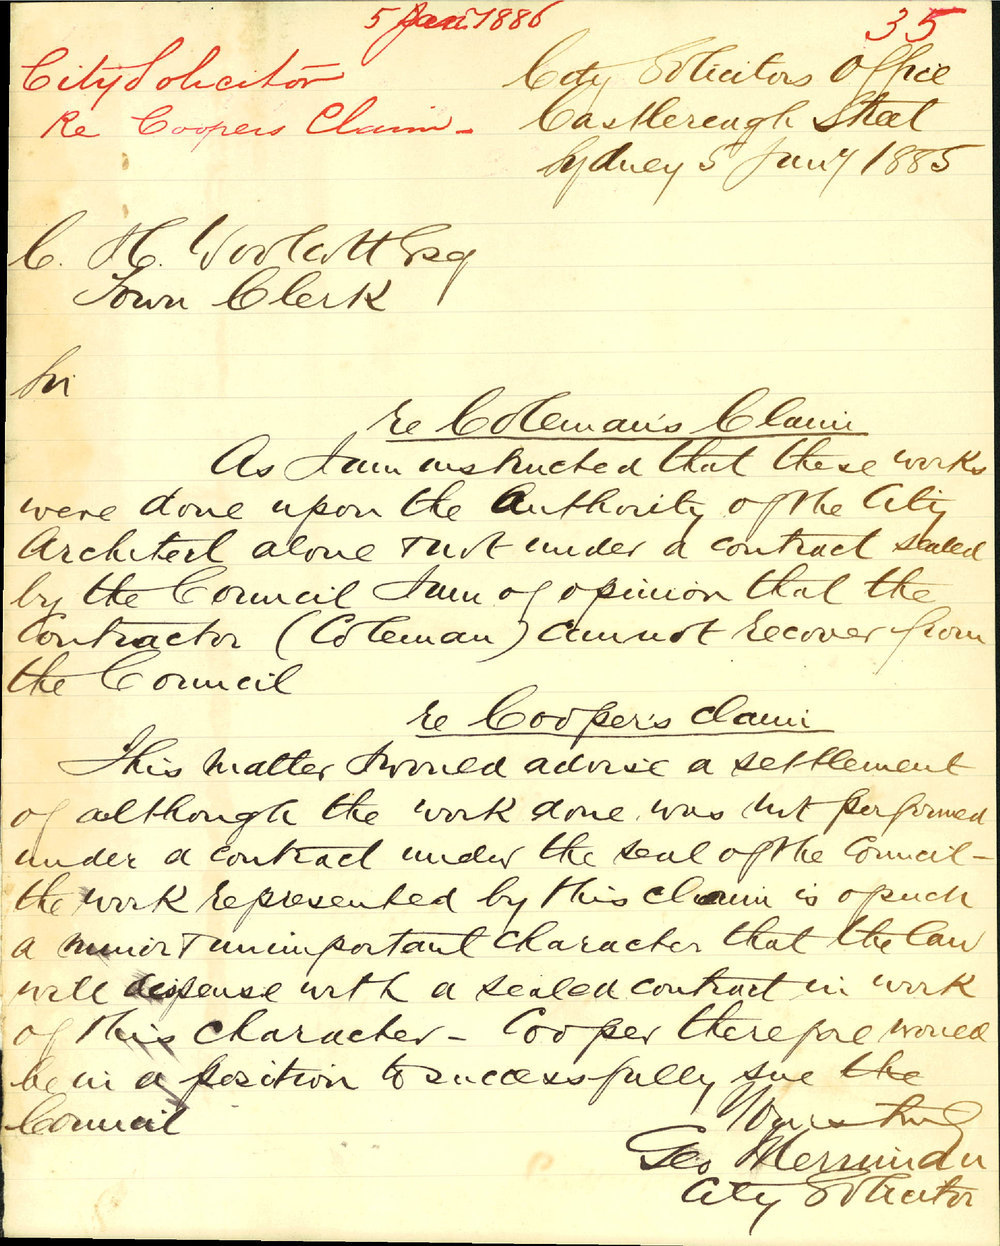 5 Jany. 1886
35
City Solicitor
Re Coopers Claim -
City Solicitors Office
Castlereagh Street
Sydney 5 Jany 1885
C. H. Woolcott Esq
Town Clerk
Sir
re Coleman's Claim
As I am instructed that these works
were done upon the Authority of the City
Architect alone & not under a contract sealed
by the Council I am of opinion that the
Contractor (Coleman) cannot recover from
the Council
re Cooper's claim
This matter I would advise a settlement
of although the work done was not performed
under a contract under the seal of the Council -
the work represented by this claim is of such
a minor & unimportant character that the law
will dispense with a sealed contract in work
of this character - Cooper therefore would
be in a position to successfully sue the
Council
Yours truly
Geo Merriman
City Solicitor